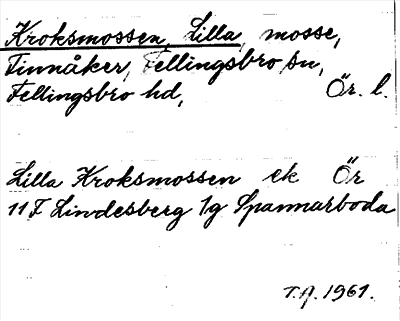 Kroksmossen, Lilla, mosse,
Finnåker, Fellingsbro sn,
Fellingsbro hd, Ör. l.
Lilla Kroksmossen ek Ör
11F Lindesberg 1g Spannarboda
T.A. 1961.